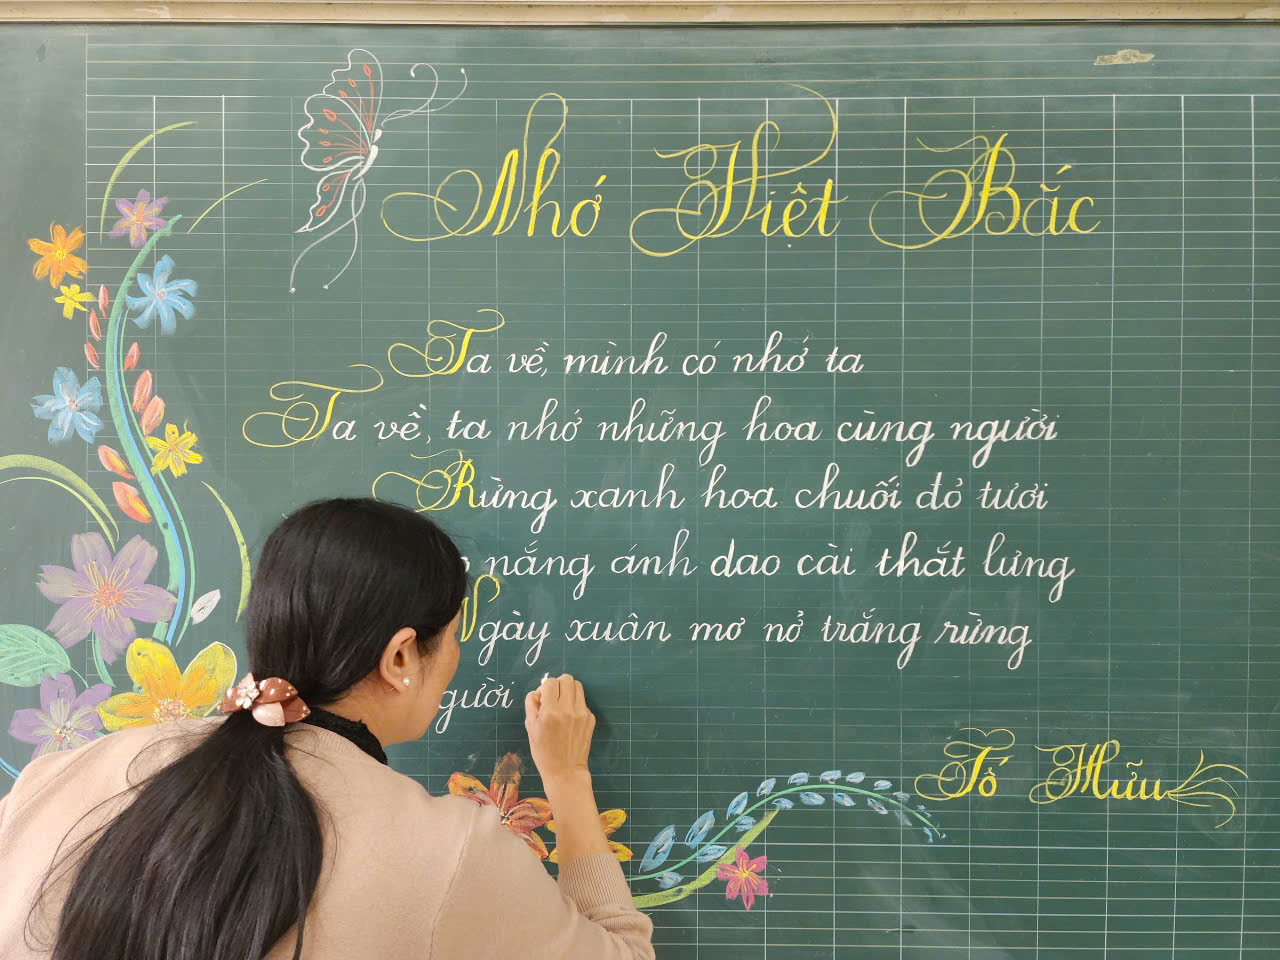 Nhớ Việt Bắc
Ta về, mình có nhớ ta
Ta về, ta nhớ những hoa cùng người
Rừng xanh hoa chuối đỏ tươi
nắng ánh dao cài thắt lưng
Ngày xuân mơ nở trắng rừng
gười
Tố Hữu